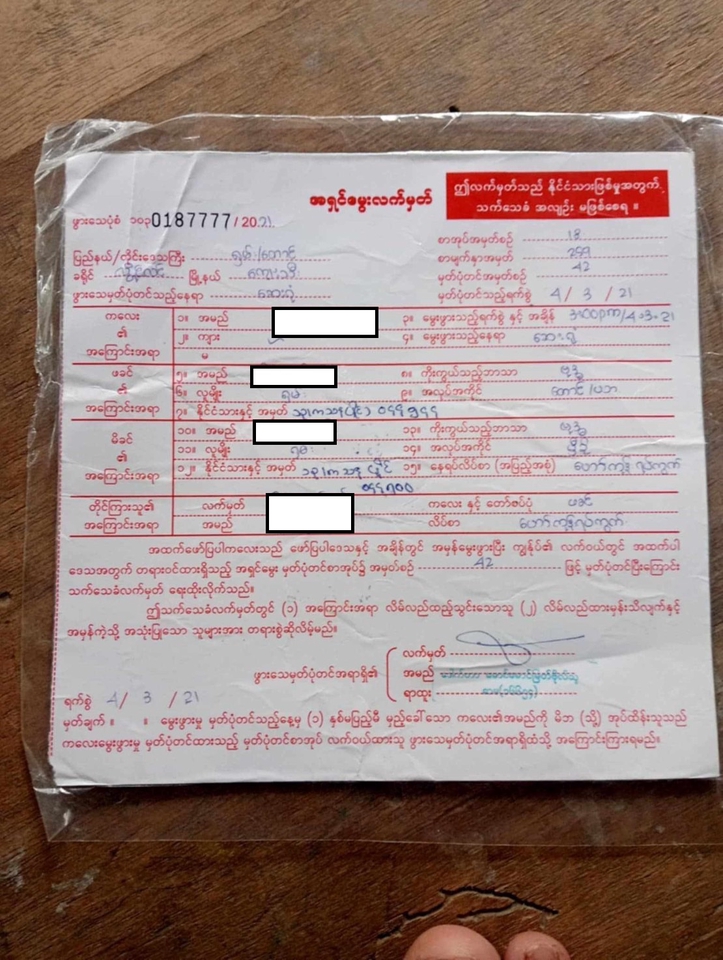 အရှင်မွေးလက်မှတ်
ဤလက်မှတ်သည် နိုင်ငံသားဖြစ်မှုအတွက်
သက်သေခံ အလျဉ်း မဖြစ်စေရ ။
ဖွားသေပုံစံ ၁၀၃ 0187777 / 2021
စာအုပ်အမှတ်စဉ် 18
ပြည်နယ်/တိုင်းဒေသကြီး ရှမ်း/တောင်
စာမျက်နှာအမှတ် 299
ခရိုင် မြို့နယ် ကျေးသီး
မှတ်ပုံတင်အမှတ်စဉ် 42
ဖွားသေမှတ်ပုံတင်သည့်နေရာ ဆေးရုံ
မှတ်ပုံတင်သည့်ရက်စွဲ 4/ 3 / 21
ကလေး၏အကြောင်းအရာ
၁။ အမည်
၃။ မွေးဖွားသည့်ရက်စွဲ နှင့် အချိန် 3:00pm/4.3.21
၂။ ကျား
မ
၄။ မွေးဖွားသည့်နေရာ ဆေးရုံ
ဖခင်၏အကြောင်းအရာ
၅။ အမည်
၈။ ကိုးကွယ်သည့်ဘာသာ ဗုဒ္ဓ
၆။ လူမျိုး ရှမ်း
၉။ အလုပ်အကိုင် တောင်/ယာ
၇။ နိုင်ငံသားနှင့် အမှတ်
မိခင်၏အကြောင်းအရာ
၁၀။ အမည်
၁၃။ ကိုးကွယ်သည့်ဘာသာ ဗုဒ္ဓ
၁၁။ လူမျိုး ရှမ်း
၁၄။ အလုပ်အကိုင် မှီခို
၁၂။ နိုင်ငံသားနှင့် အမှတ်
၁၅။ နေရပ်လိပ်စာ (အပြည့်အစုံ) ရပ်ကွက်
တိုင်ကြားသူ၏အကြောင်းအရာ
လက်မှတ်
ကလေး နှင့် တော်စပ်ပုံ ဖခင်
အမည်
လိပ်စာ ရပ်ကွက်
အထက်ဖော်ပြပါကလေးသည် ဖော်ပြပါဒေသနှင့် အချိန်တွင် အမှန်မွေးဖွားပြီး ကျွန်ုပ်၏ လက်ဝယ်တွင် အထက်ပါ
ဒေသအတွက် တရားဝင်ထားရှိသည့် အရှင်မွေး မှတ်ပုံတင်စာအုပ်၌ အမှတ်စဉ် 42 ဖြင့် မှတ်ပုံတင်ပြီးကြောင်း
သက်သေခံလက်မှတ် ရေးထိုးလိုက်သည်။
ဤသက်သေခံလက်မှတ်တွင် (၁) အကြောင်းအရာ လိမ်လည်ထည့်သွင်းသောသူ (၂) လိမ်လည်ထားမှန်းသိလျက်နှင့်
အမှန်ကဲ့သို့ အသုံးပြုသော သူများအား တရားစွဲဆိုလိမ့်မည်။
ဖွားသေမှတ်ပုံတင်အရာရှိ၏
လက်မှတ်
အမည်
ရာထူး
ရက်စွဲ 4 / 3 / 21
မှတ်ချက် ။ ။ မွေးဖွားမှု မှတ်ပုံတင်သည့်နေ့မှ (၁) နှစ်မပြည့်မီ မှည့်ခေါ်သော ကလေး၏အမည်ကို မိဘ (သို့) အုပ်ထိန်းသူသည်
ကလေးမွေးဖွားမှု မှတ်ပုံတင်ထားသည့် မှတ်ပုံတင်စာအုပ် လက်ဝယ်ထားသူ ဖွားသေမှတ်ပုံတင်အရာရှိထံသို့ အကြောင်းကြားရမည်။